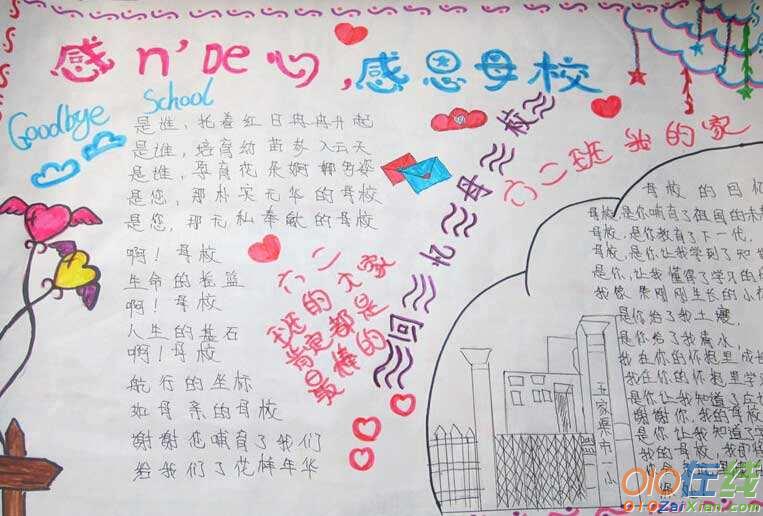 感n'De心，感恩母校
Goodbye School
是谁，托着红日冉冉升起
是谁，培育幼苗参入云天
是谁，要育花朵婀娜多姿
是您，那朴实无华的母校
是您，那无私奉献的母校
啊！母校
生命的摇篮
啊！母校
人生的基石
啊！母校
航行的坐标
如母亲的母校
谢谢您哺育了我们
给我们了花样年华
六二
班的大家
肯定都是
最棒的
回忆母校
六二班 我的家
母校的回忆
母校，是你哺育了祖国的未
母校，是你教育了下一代，
母校，是你让我学到了知
是你，让我懂得了学习的
我像 果刚刚生长的小
是你给了我土壤，
是你给了我滴水，
我在你的怀抱里成长
我在你的怀抱里学
是你让我知道了
谢谢你，我的母校
是你让我知道了
我的母校，我
五家渠市一小
010在线
010ZaiXian.com